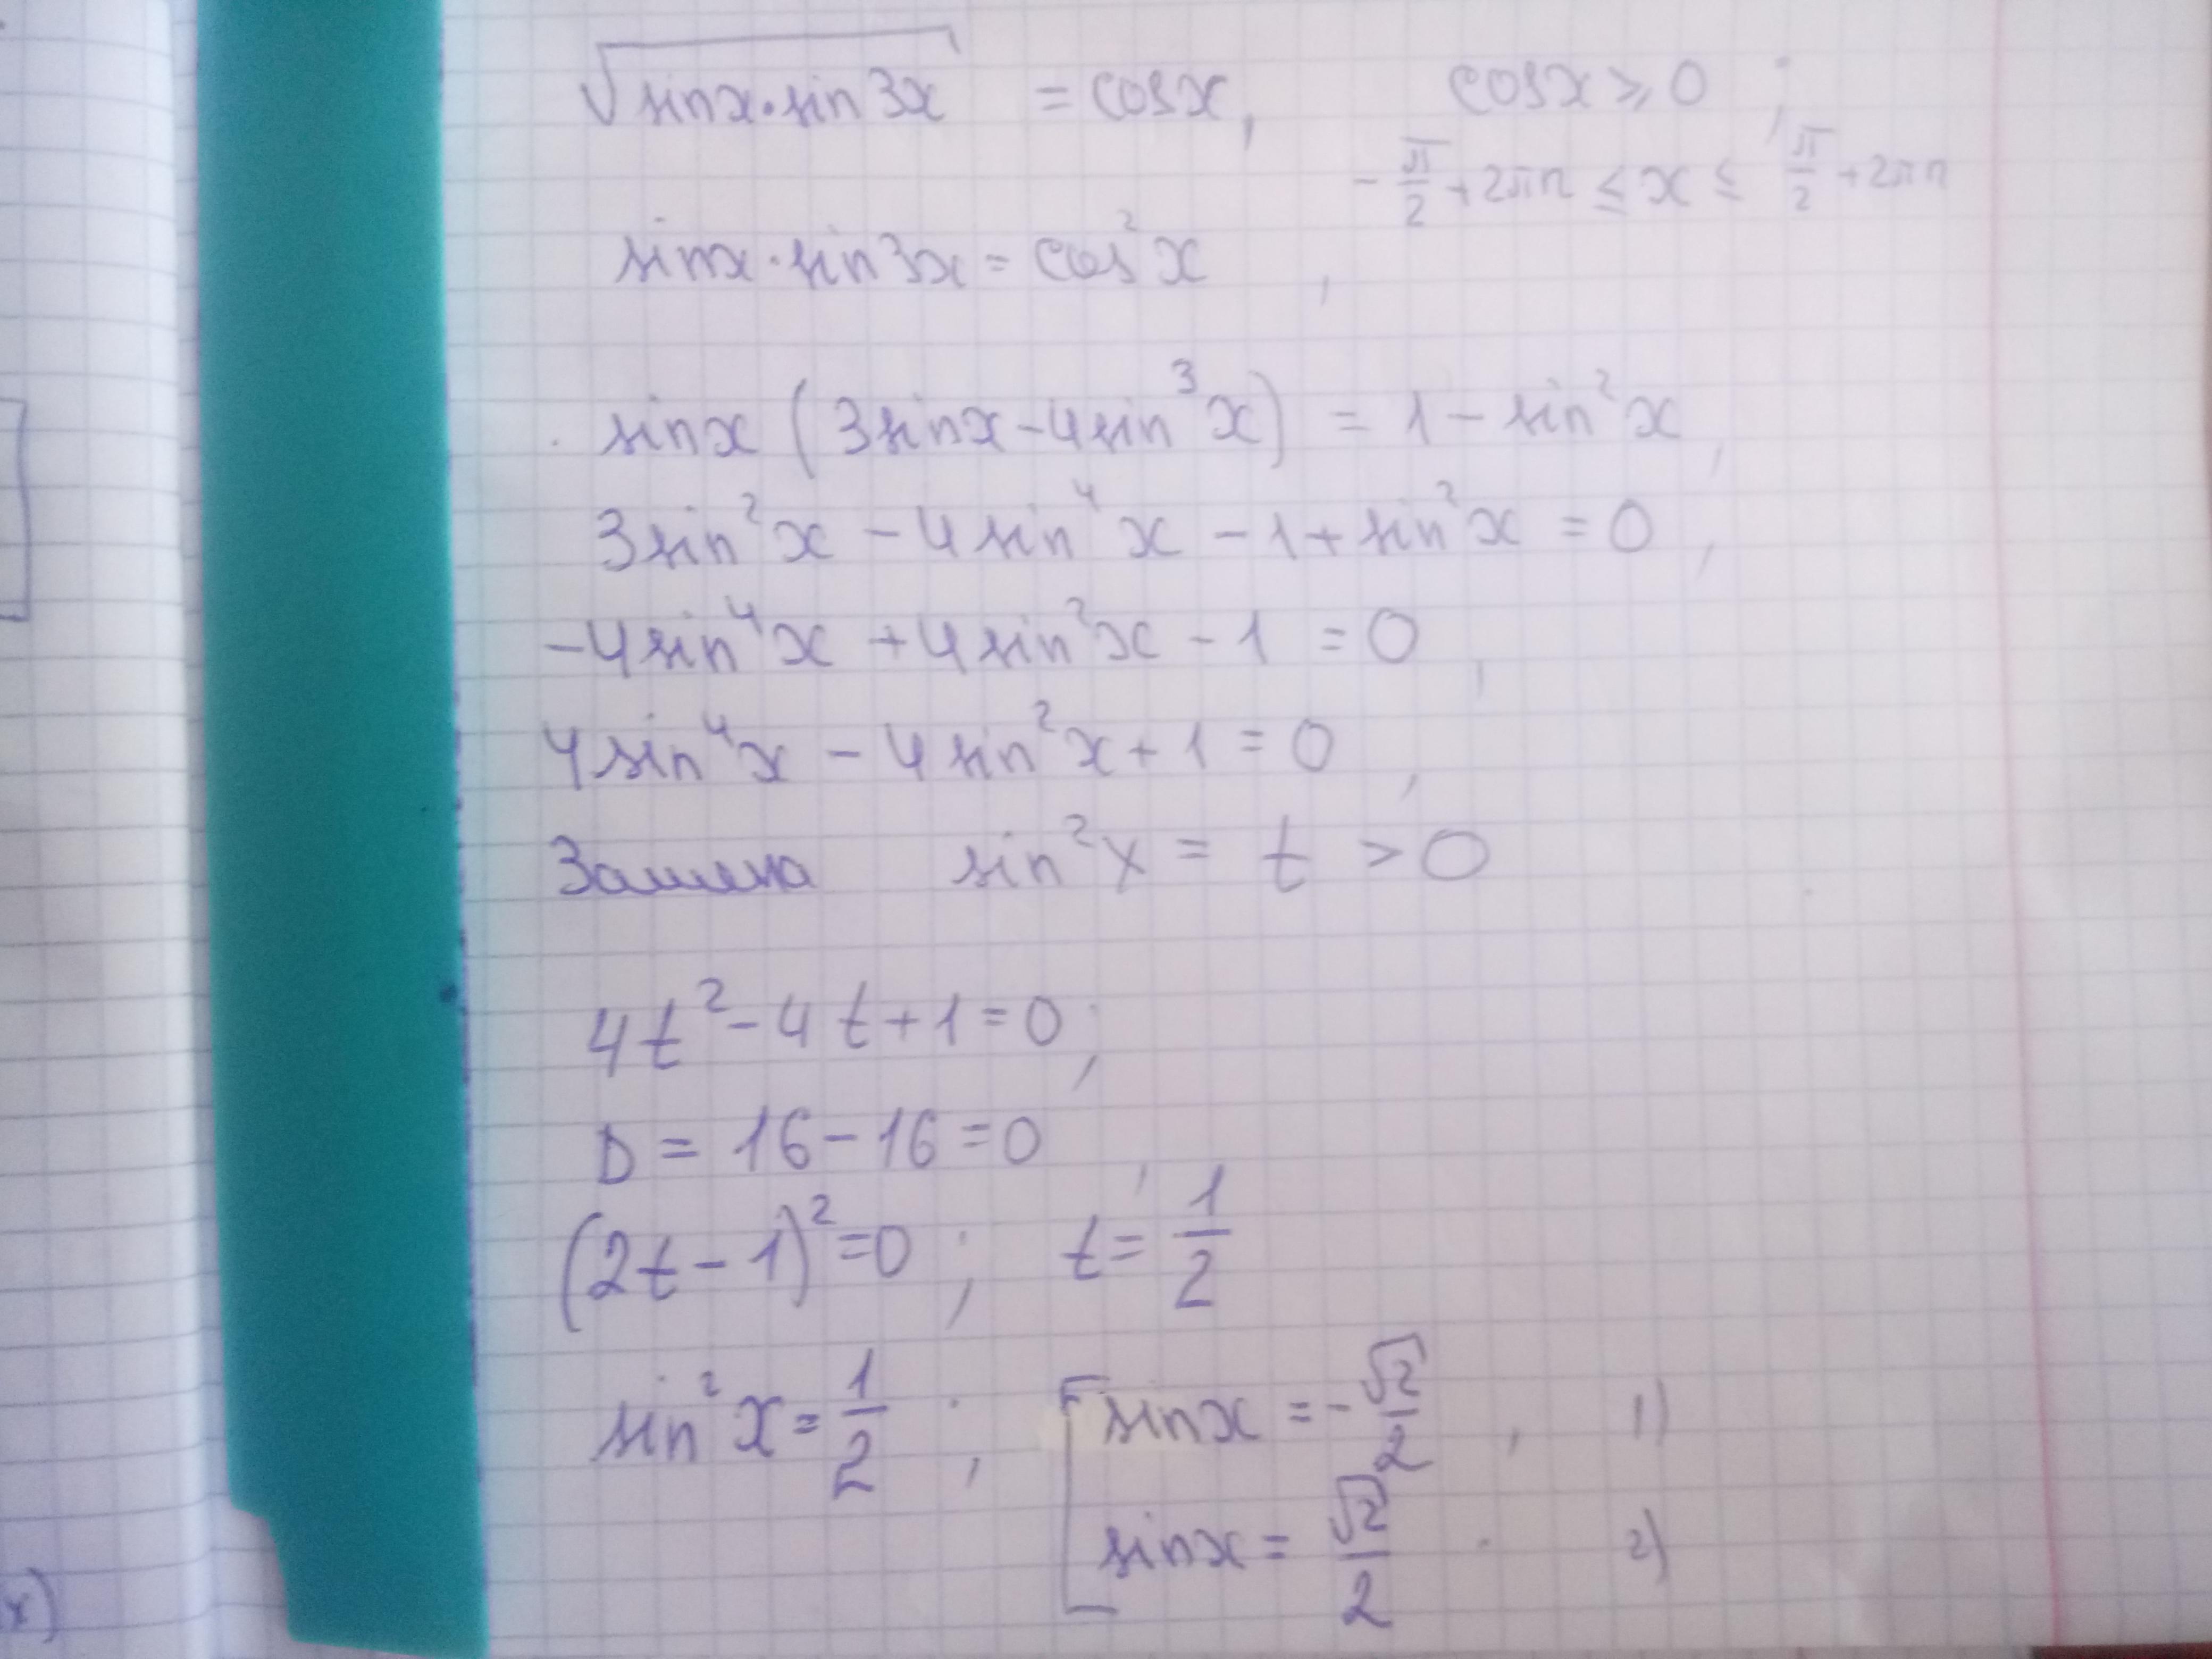 √(sinx·sin3x) = cosx, cosx ⩾ 0 ;
-π/2 + 2πn ≤ x ≤ π/2 + 2πn
sinx·sin3x = cos²x ,
sinx (3sinx - 4sin³x) = 1 - sin²x ,
3sin²x - 4sin⁴x - 1 + sin²x = 0 ,
-4sin⁴x + 4sin²x - 1 = 0 ,
4sin⁴x - 4sin²x + 1 = 0 ,
Замена sin²x = t > 0
4t² - 4t + 1 = 0 ;
D = 16 - 16 = 0 ,
(2t - 1)² = 0 ; t = 1/2
sin²x = 1/2 ; [ sinx = -√2/2 , 1)
sinx = √2/2 . 2)
x)